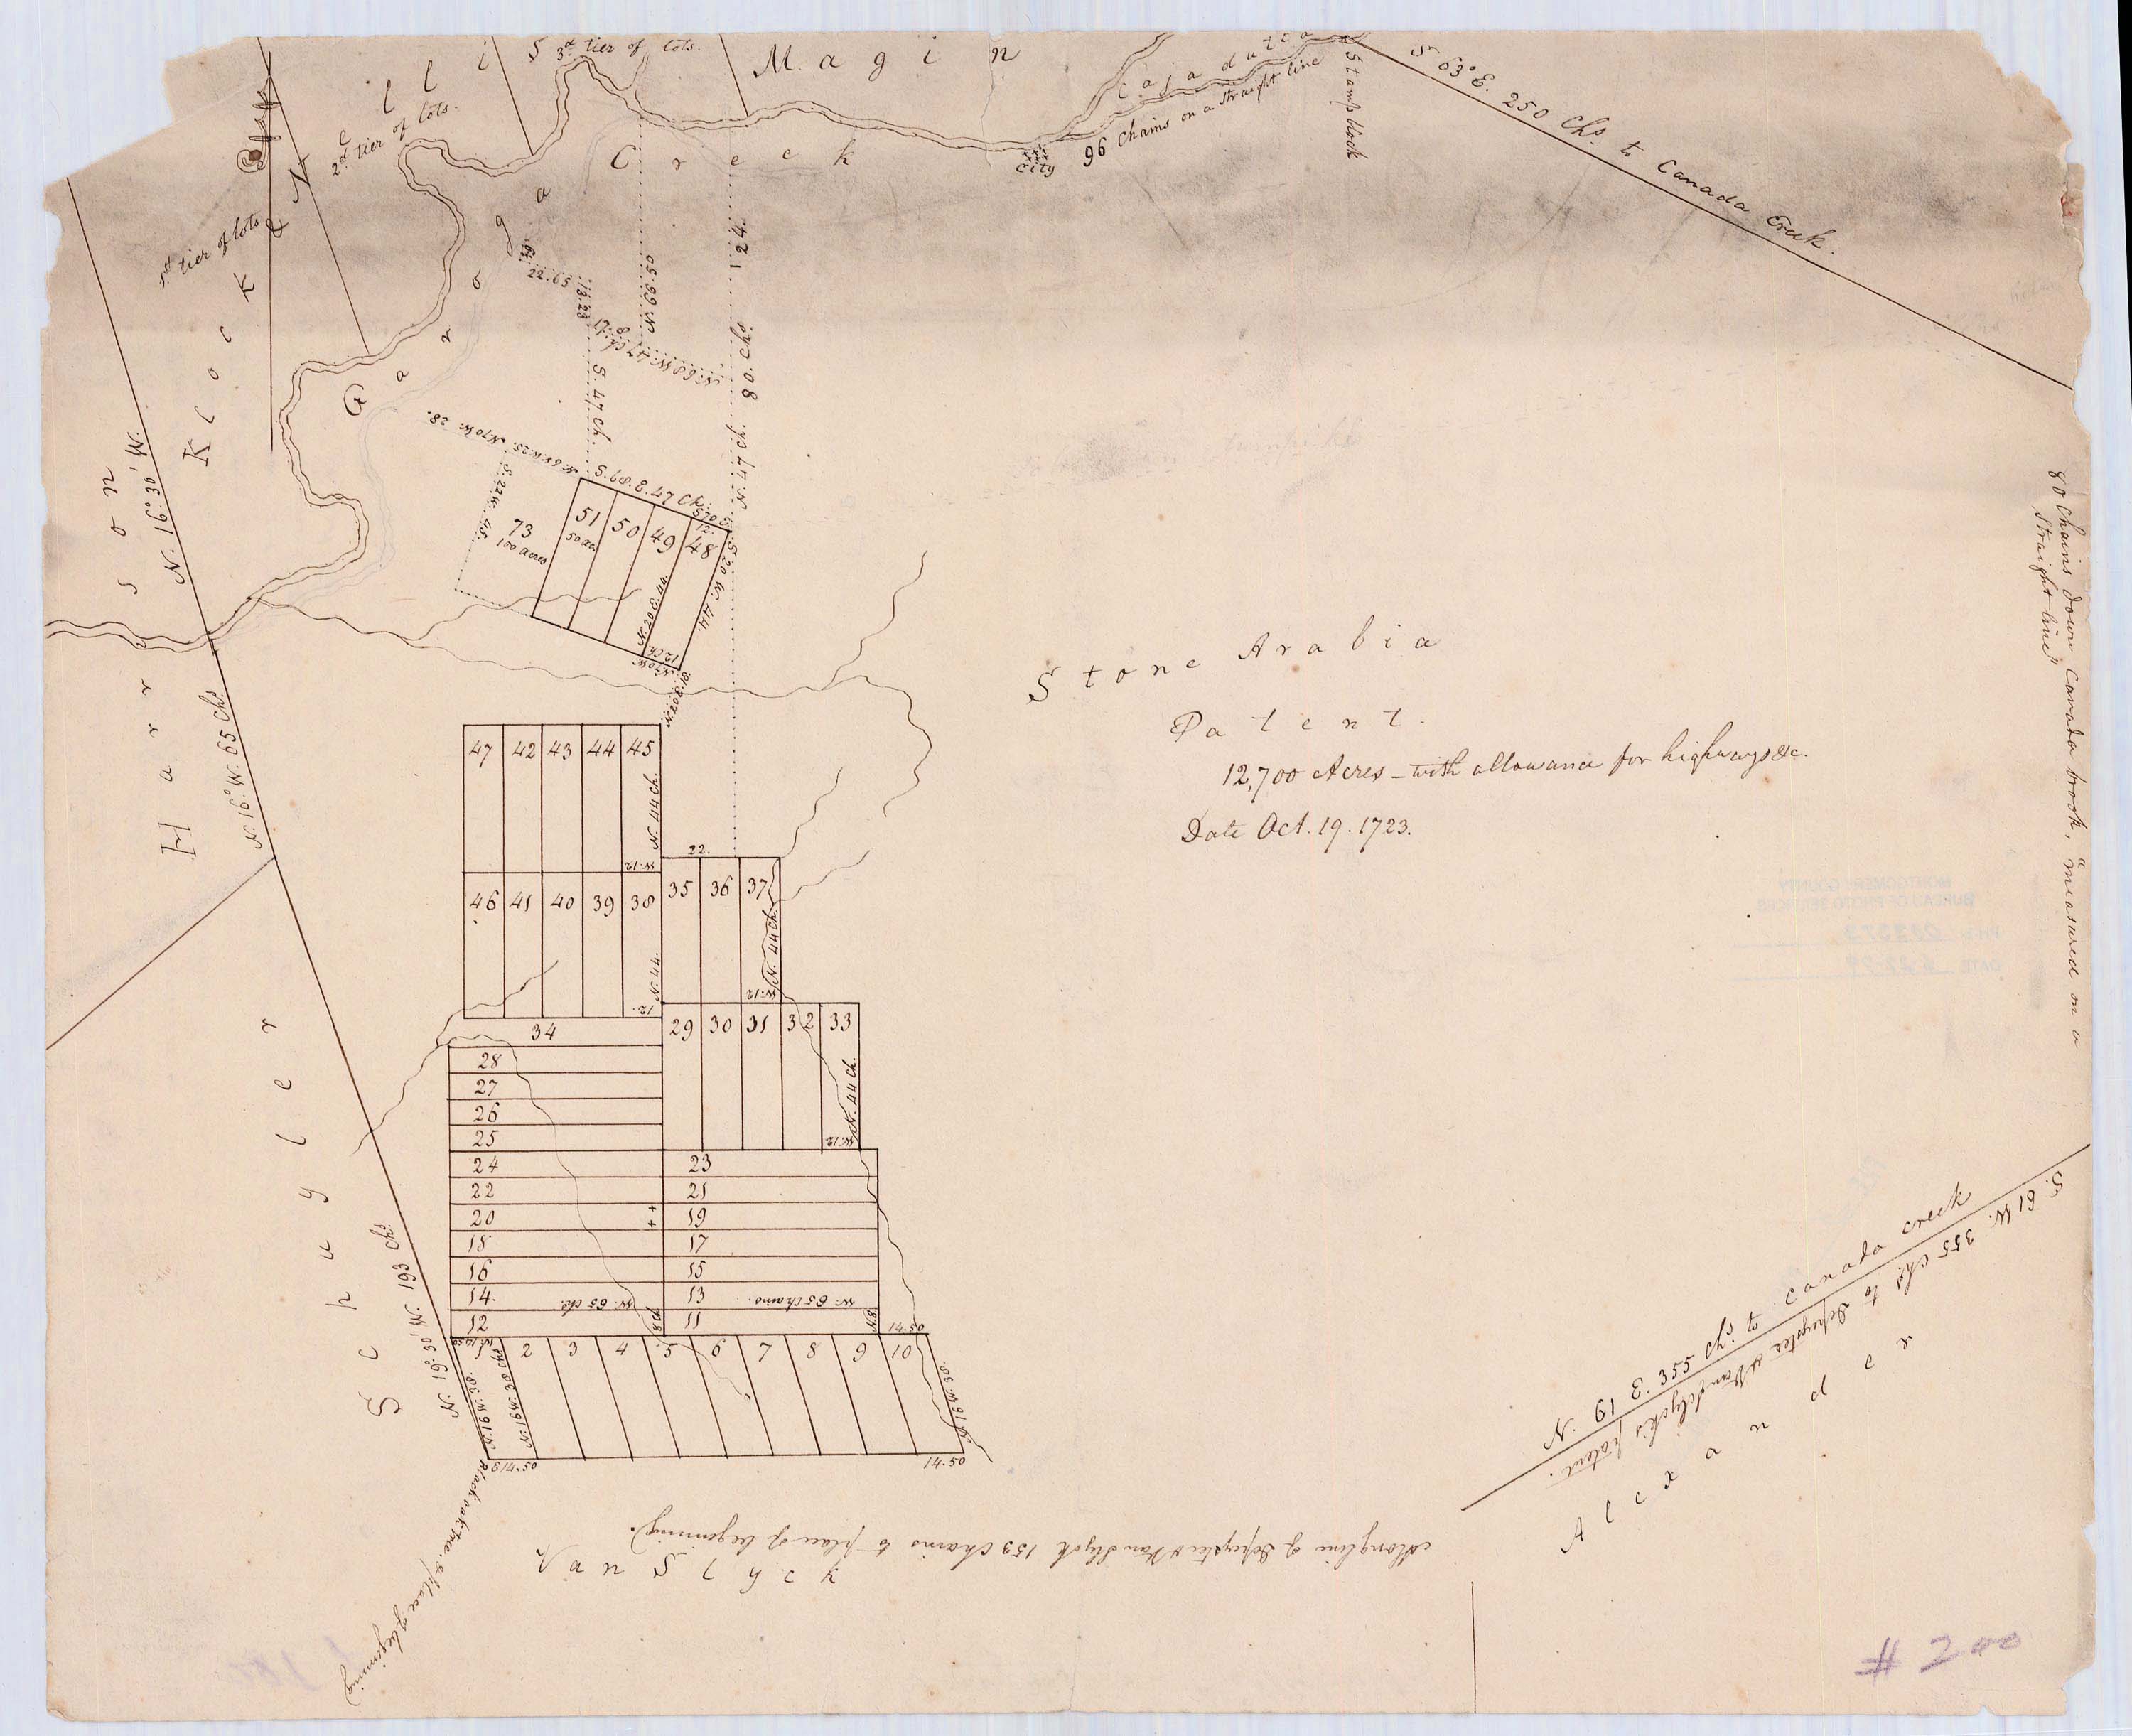 3.d tier of lots.
M a g i n
C a j a d u t t a
96 Chains on a straight line
Stamp block
S 63° E. 250 Chs. to Canada Creek.
2.d tier of lots.
1st tier of lots
K l o c k &
N e l l i s
G a r o g a
C r e e k
City
22.65
13.23
N. 69.50
124.
80. Chs.
S. 47 Ch.
N. 47 Ch.
N. 70 W. 28.
S. 68. E. 47 Ch.
S. 22 W. 45.
S. 20 W. 44.
N. 20 E. 44.
12 Ch.
N. 70 W.
N. 20 E. 10.
73
100 acres
51
50 ac.
50
49
48
H a r r i s o n
N. 16°. 30' W.
N. 16° W. 65 Chs.
80 Chains down Canada brook, measured on a
straight line
S t o n e A r a b i a
P a t e n t.
12,700 Acres – with allowance for highways &c.
Date Oct. 19. 1723.
47 42 43 44 45
N. 44 Ch.
W. 12
22.
46 41 40 39 38
35 36 37
N. 44.
12.
N. 44 Ch.
W. 12
34
29 30 31 32 33
N. 44 Ch.
W. 12
28
27
26
25
24 23
22 21
20 19
18 17
16 15
14. 13
W. 65 ch.
W. 65 Chains.
12 11
8 Ch.
N. 8
14.50
1 2 3 4 5 6 7 8 9 10
N. 16 W. 30.
N. 16 W. 30 Chs
S. 16 W. 30.
14.50
14.50
S c h u y l e r
N. 19°. 30' W. 193 Chs.
Black oak tree & place of beginning
N. 61 E. 355 Chs. to Canada creek
S. 61 W. 355 Chs. to Depeyster & Van Slyck's patent.
A l e x a n d e r
Along line of Depeyster & Van Slyck 153 Chains to place of beginning.
V a n S l y c k
# 200